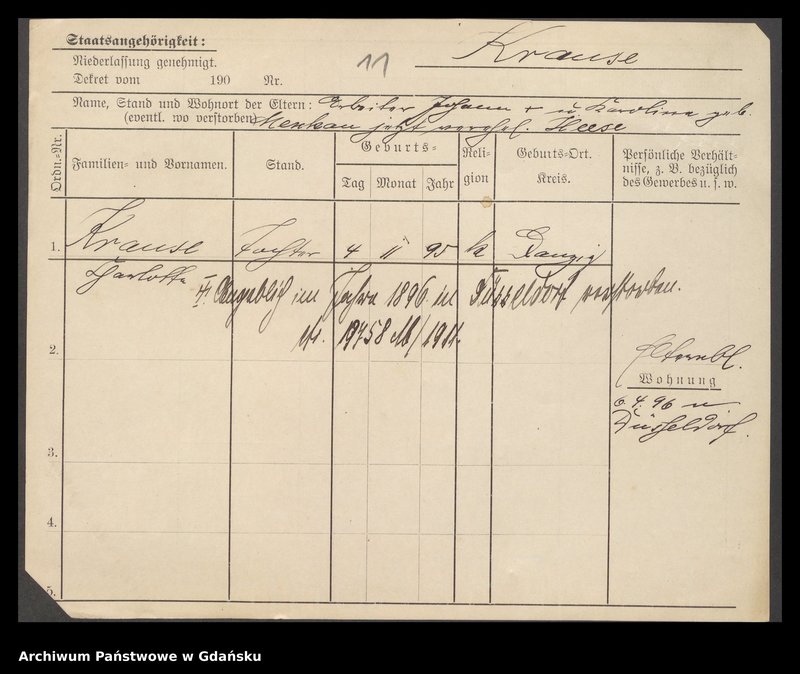 Staatsangehörigkeit:
Niederlassung genehmigt.
Dekret vom 190 Nr.
11
Krause
Name, Stand und Wohnort der Eltern: Arbeiter Johann † u Karolina geb.
(eventl. wo verstorben) jetzt verehel. Heese
Ordn.-Nr.
Familien- und Vornamen.
Stand.
Geburts-
Tag Monat Jahr
Religion
Geburts-Ort.
Kreis.
Persönliche Verhält-
nisse, z. B. bezüglich
des Gewerbes u. s. w.
1. Krause Tochter 4 11 95 k Danzig
Charlotte
† Angeblich im Jahre 1896 in Düsseldorf verstorben.
19758 M/1911.
2.
Elternbl.
Wohnung
6.4.96 n
Düsseldorf.
3.
4.
5.
Archiwum Państwowe w Gdańsku